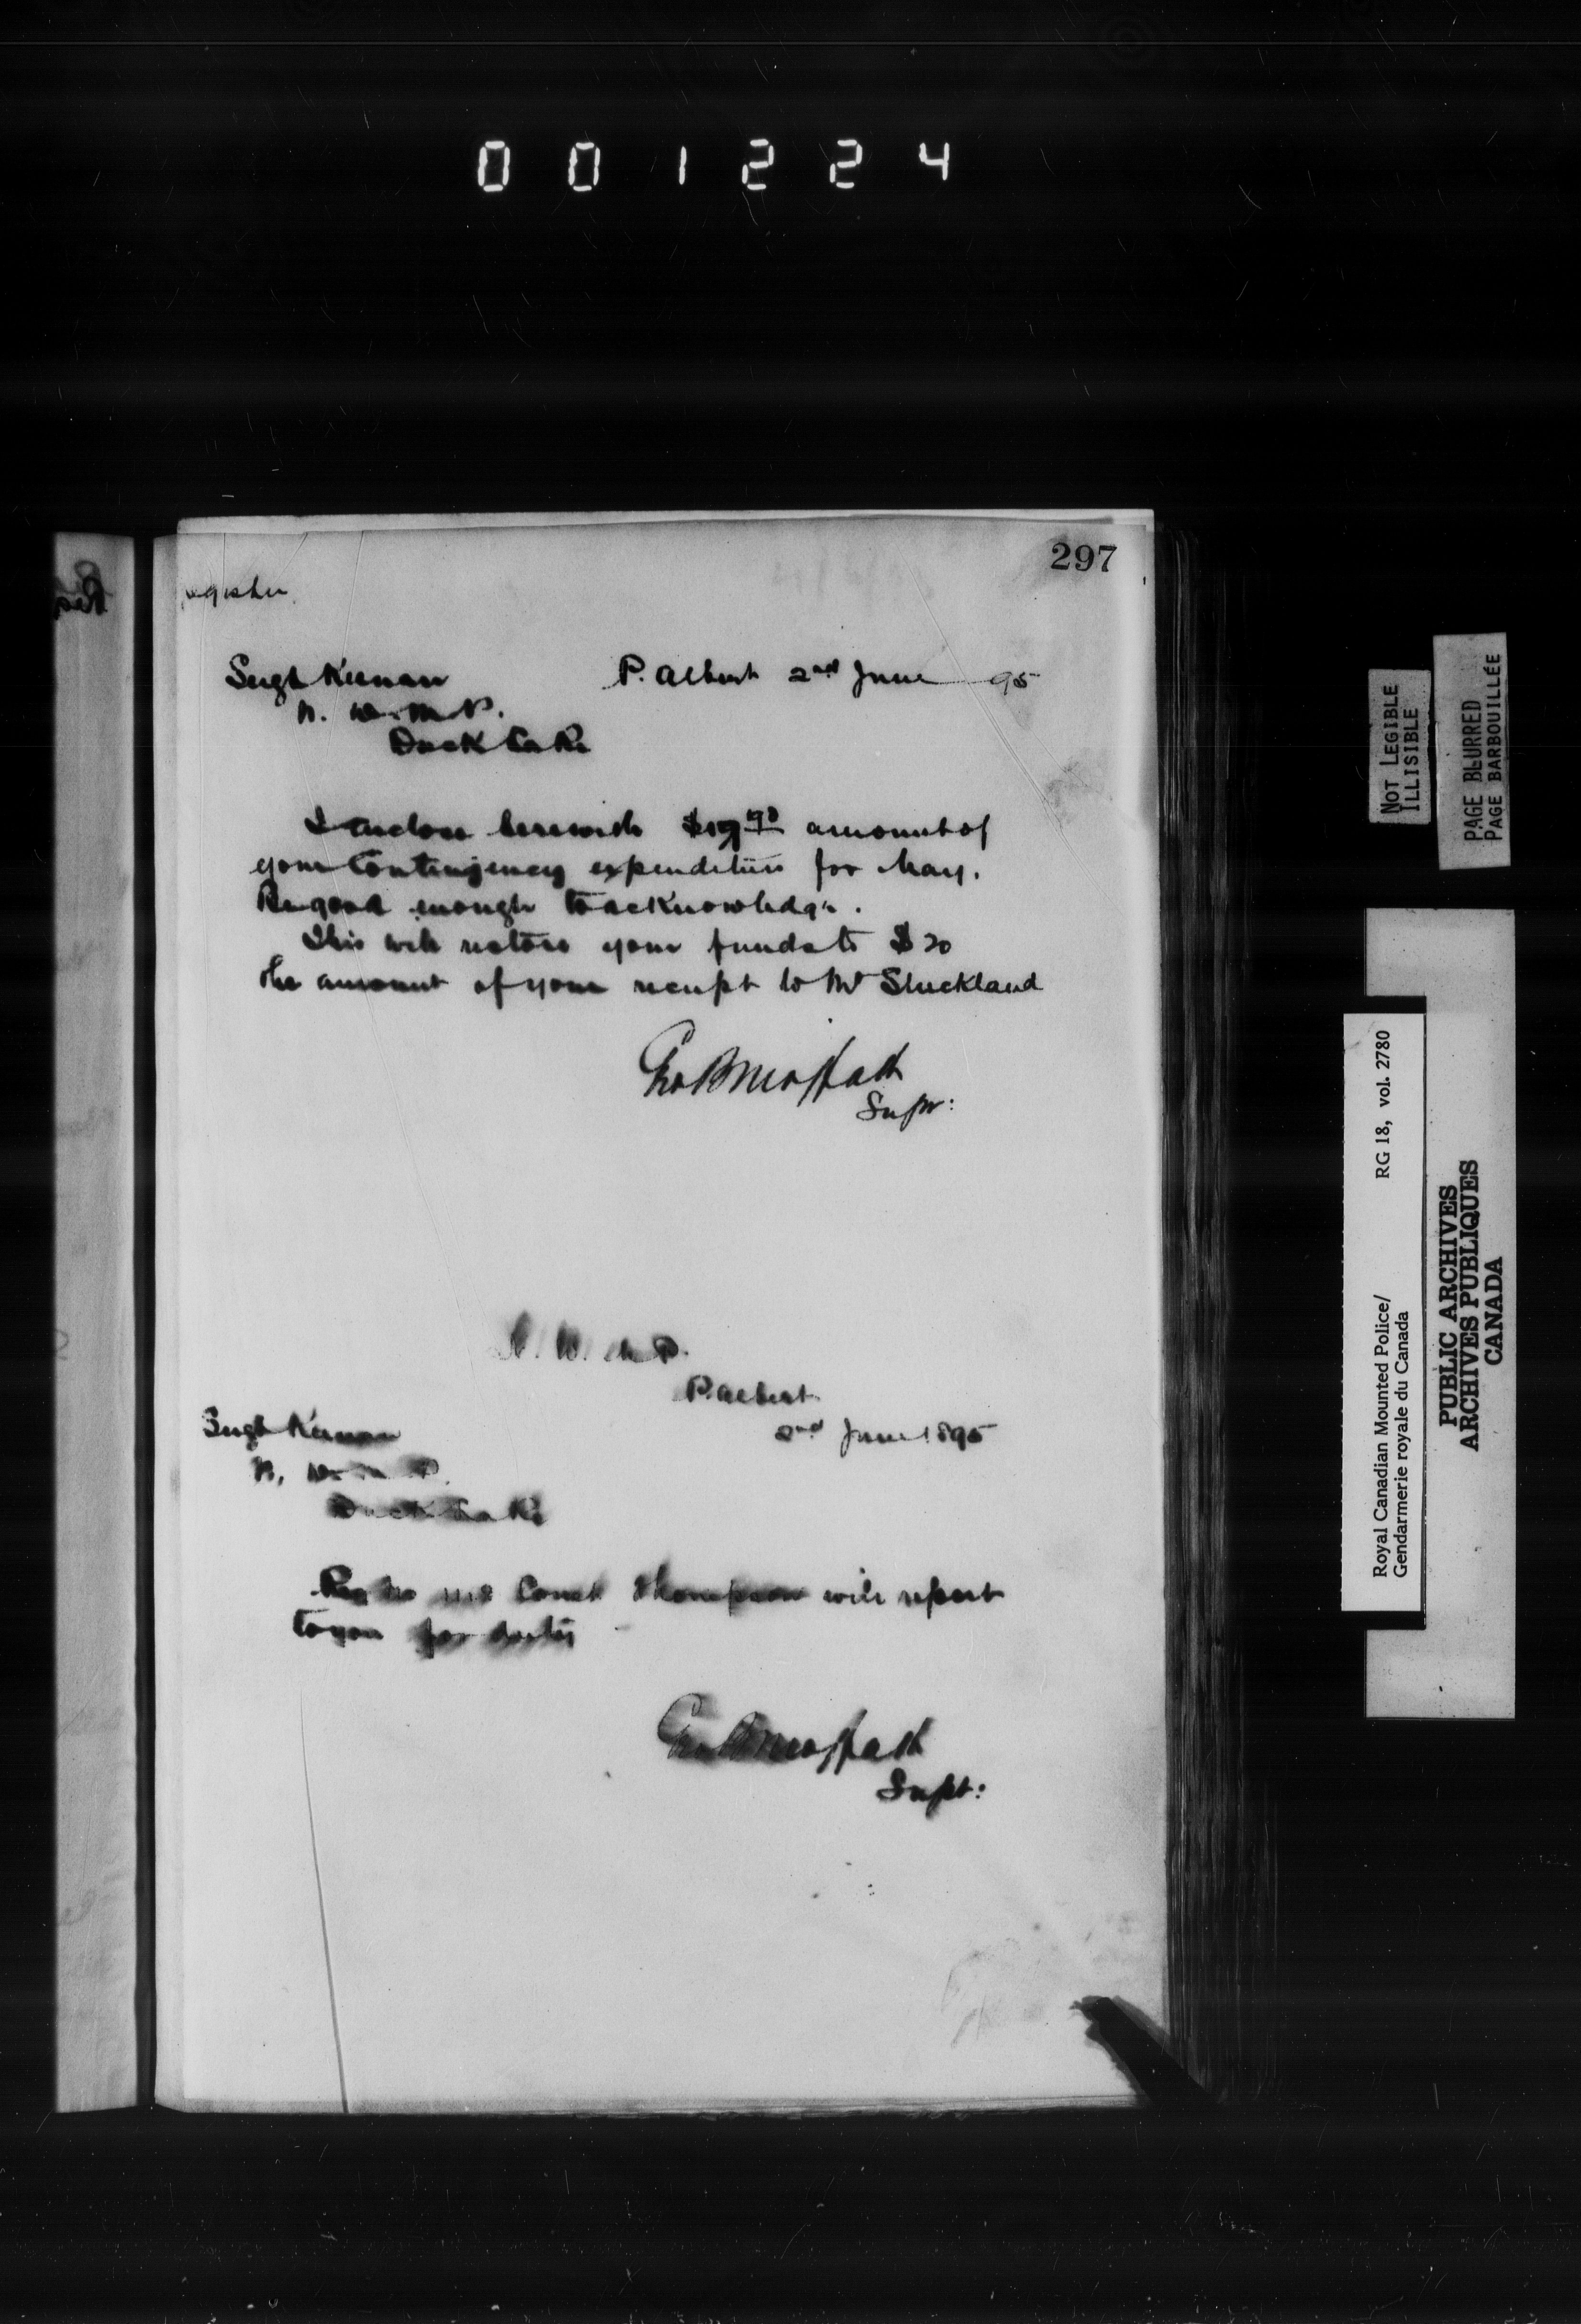 001224
297
Register
Sergt Keenan P. Albert 2nd June 95
N. W. M. P.
Duck Lake
I enclose herewith amount of
your Contingency expenditure for May.
Be good enough to acknowledge.
This will restore your funds to $20
the amount of your receipt to Mr Strickland
Geo B Moffatt
Supt:
N. W. M. P.
P. Albert
Sergt Keenan
2nd June 1895
N. W. M. P.
Duck Lake
Reg No Const Thompson will report
to you for duty
Geo B Moffatt
Supt:
NOT LEGIBLE
ILLISIBLE
PAGE BLURRED
PAGE BARBOUILLÉE
Royal Canadian Mounted Police/ RG 18, vol. 2780
Gendarmerie royale du Canada
PUBLIC ARCHIVES
ARCHIVES PUBLIQUES
CANADA